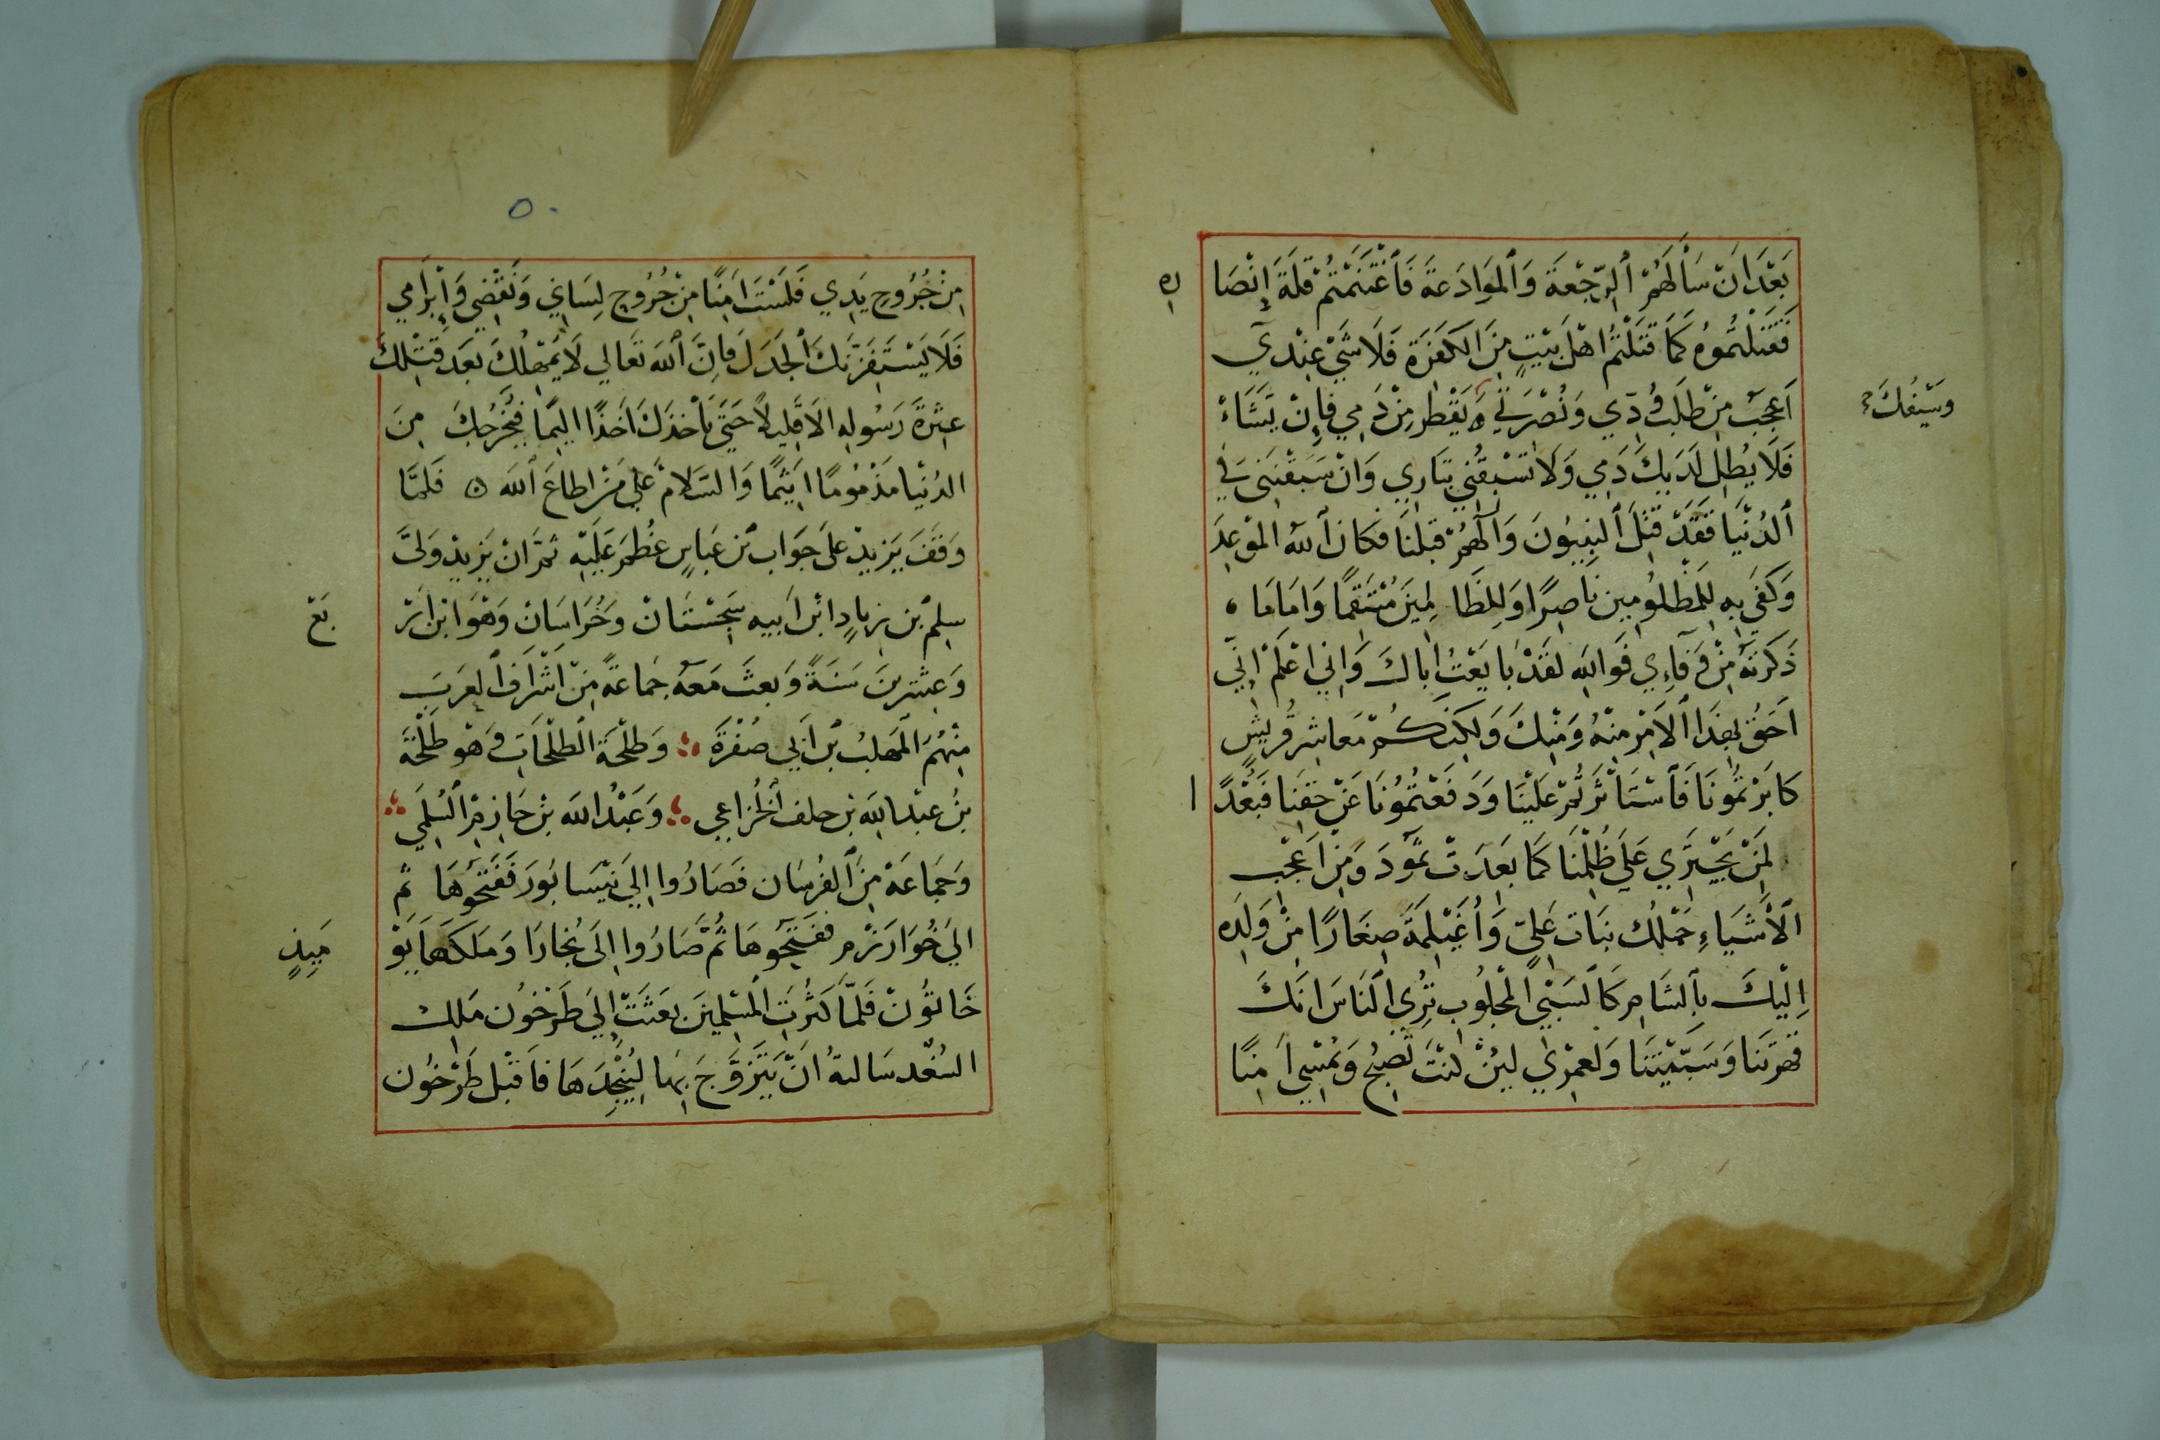 بَعْدَ اَنْ سَأَلَهُمْ اُلرِّجْعَةَ وَاُلمَوادَعةَ فَاُغْتَنَمْتُمْ قَلَةَ إِنْصَا
رِه
فَقَتَلْتُمُوهُ كَمَا قَتَلْتُمْ اهْلَ بَيْتٍ مِنَ الكَفَرَةِ فَلَا شَيْ عِنْدِي
اَعجَبَ مِنْ طلَبِ وُدِّي وَنُصْرَتيْ وَ يَقْطر مِنْ دَمِي فَإِنْ يَشَاءْ
وَسَيْفُكَ
فَلَا يُطِلِ لَدَيكَ دَمِي وَلاَ تسْبقُنِي بِتَارِي وَانْ سَبَقْتَنِي فيِ
اُلدُنْيَا فَقَدْ قُتِلَ اُلنِبِيُونَ وَاُلهُمْ قبلَنَا فكَانَ اُللهُ المْوَعِدَ
وَكَفَي بِهِ لِلمَظْلُومِين نَاصِرًا وَلِلِظَا لِمِينَ مُنْتَقمًا وَامَامَا
ذَكَرْتَهُ مِنْ وَفَآءِي فَوَاللهِ لقَدْ بَا يَعْتُ اَباكَ وَاِنيِ اعْلَمْ اِنِّي
اَحَقُ بِهَذَا اُلاَمْرِ مِنْهُ وَمِنْكَ وَلَكِنَكُمْ مَعَاشِرِ قُرَيشٍ
كَابَرْتُمُونَا فَاُسْتَاْثَرْتُمْ عَلَيْنَا وَدَفَعْتُمُونَا عَنْ حَقِنَا فَبُعْدًا
ا
لِمَنْ يَجْتَرِي عَلَي ظُلْمِنَا كَمَا بَعِدَتْ ثمُودَ وَمِنْ اَعْجَب
اُلاَْشَيَاءِ حَمْلُكَ بنَاتَ عَلِيِّ وَاُغَيْلِمَةً صِغَارًا مِنْ وَلَدِه
اِلَيْكَ بِاُلشَامِ كَاُلسَبْيِ اُلمجْلُوبِ تُرِي اُلنَاسَ انَكَ
قَهَرَتنَا وَسَبَيْتَنَا وَلَعمْرِي لَئِنْ كنْتَ تُصْبِحُ وَتمْسِي اَمِنًا
٥٠
مِنْ جُرُوحِ يَدِي فَلَسْتَ اَمِنًا مِنْ جُرُوحِ لِسَانِي وَنَقْضِي وَإِبْرَامِي
فَلَا يَسْتَفِزَنَكَ اُلجَدَلَ فَاِنَ اُللهَ تَعَالي لَا يُمْهِلُكَ بعَدَ قَتْلِكَ
عِتْرَةَ رَسُولِهِ الاَ قَلِيلاً حَتَي يَاْخذَكَ اَخذًا اليمًا فَيُخْرِجُكَ مِنَ
الدُنْيَا مَذْمُومًا اَثِيمًا وَالسَلَامُ عَلي مَنْ اطَاعَ اُللهَ ۞ فَلَمَّا
وَقَفَ يَزِيدُ عَلَى جَوَابِ بْن عَبَاسٍ عَظمَ عَلَيْهِ ثمَّ انْ يَزِيدْ وَلىَّ
سِلمْ بْن زِيَادٍ ابْن اَبِيه سِجِسْتَانْ وَخُرَاسَانْ وَهْوَ ابْن اَرْ
بَعْ
وَعِشْرِينَ سَنَةً وَبعثَ مَعهُ جَماعَةً مِنْ اَشْرَافِ اُلعَرَبِ
مِنْهُمْ اَلمَهَلبُ بْن اَبِي صُفْرَةَ وَطَلْحَةَ اُلطَلْحَاتِ وَهْوَ طَلْحَةَ
بْنُ عَبْداللهِ بْن خلف اُلخُزاعِي وَعَبْدُ اللهَ بْن حَازِمْ اُلسُلَمِي
وَجَمَاعَةْ مِنَ اُلفُرسَان فَصَارُوا اِلي نَيْسَابُورَ فَفَتَحُوهَا ثمَ
اليَ خُوَارَزْمِ ففَتَحُوهَا ثمُ صَارُوا اِلَى بُخَارَا وَمَلكَهَا يَوْ
مَيِذٍ
خَاتُونْ فَلَمَّا كَثُرَتِ اُلمْسْلِمينَ بَعَثَتْ اِلَي طَرْخُون مَلِكَ
السُغْد سَالتهُ اَنْ يَتَزَوَّجَ بِهَا لِيُنْجِدَهَا فَاَقْبَل طَرْخُون